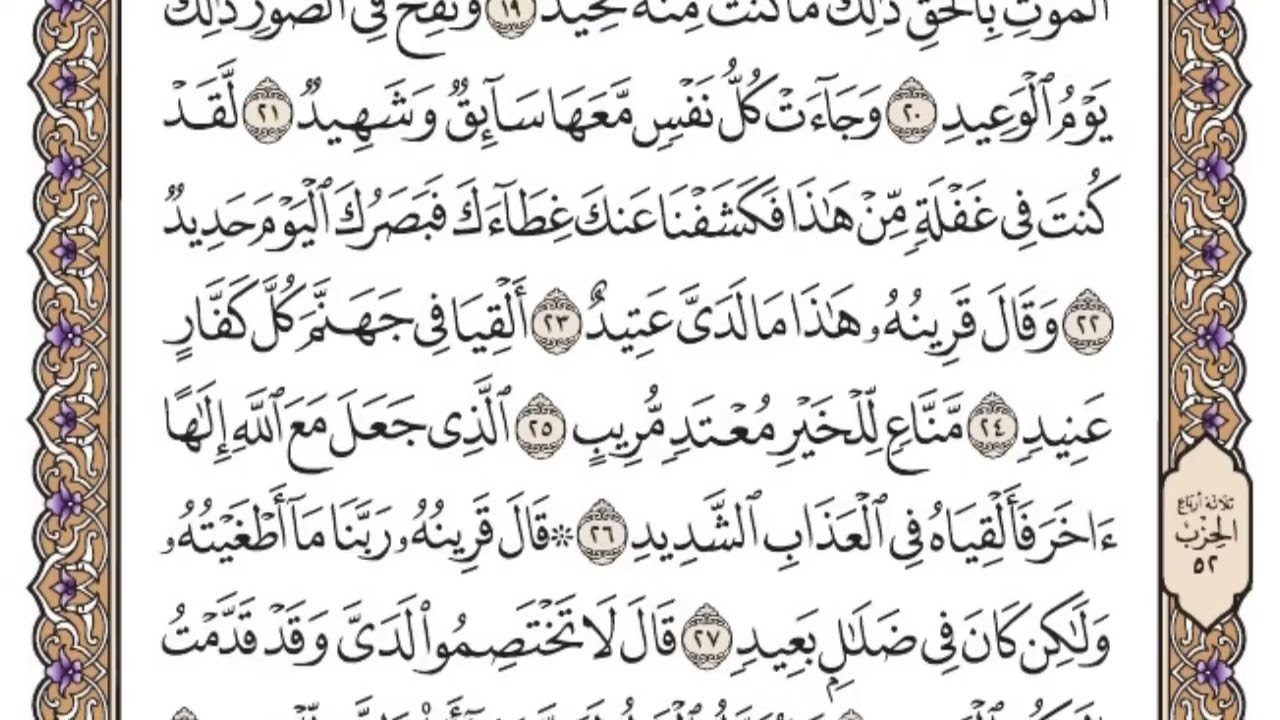 الْمَوْتِ بِالْحَقِّ ذَٰلِكَ مَا كُنتَ مِنْهُ تَحِيدُ ١٩ وَنُفِخَ فِي الصُّورِ ذَٰلِكَ
يَوْمُ ٱلْوَعِيدِ ٢٠ وَجَآءَتْ كُلُّ نَفْسٍ مَّعَهَا سَآئِقٌ وَشَهِيدٌ ٢١ لَّقَدْ
كُنتَ فِى غَفْلَةٍ مِّنْ هَٰذَا فَكَشَفْنَا عَنكَ غِطَآءَكَ فَبَصَرُكَ ٱلْيَوْمَ حَدِيدٌ
٢٢ وَقَالَ قَرِينُهُۥ هَٰذَا مَا لَدَىَّ عَتِيدٌ ٢٣ أَلْقِيَا فِى جَهَنَّمَ كُلَّ كَفَّارٍ
عَنِيدٍ ٢٤ مَّنَّاعٍ لِّلْخَيْرِ مُعْتَدٍ مُّرِيبٍ ٢٥ ٱلَّذِى جَعَلَ مَعَ ٱللَّهِ إِلَٰهًا
ءَاخَرَ فَأَلْقِيَاهُ فِى ٱلْعَذَابِ ٱلشَّدِيدِ ٢٦ ۞ قَالَ قَرِينُهُۥ رَبَّنَا مَآ أَطْغَيْتُهُۥ
وَلَٰكِن كَانَ فِى ضَلَٰلٍۭ بَعِيدٍ ٢٧ قَالَ لَا تَخْتَصِمُوا۟ لَدَىَّ وَقَدْ قَدَّمْتُ
ثلاثة أرباع
الحِزْبُ
٥٢